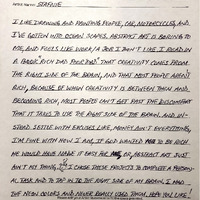 STAFFUE
I LIKE DRAWING AND PAINTING PEOPLE, CAR, MOTORCYCLES, AND
I'VE GOTTEN INTO OCEAN SCAPES. ABSTRACT ART IS BORING TO
ME, AND FEELS LIKE WORK/A JOB I DON'T LIKE. I READ IN
A BOOK RICH DAD POOR DAD THAT CREATIVITY COMES FROM
THE RIGHT SIDE OF THE BRAIN, AND THAT MOST PEOPLE AREN'T
RICH, BECAUSE OF WHEN CREATIVITY IS BETWEEN THEM AND
BECOMING RICH, MOST PEOPLE CAN'T GET PAST THE DISCOMFORT
THAT IT TAKES TO USE THE RIGHT SIDE OF THE BRAIN. AND IN-
STEAD SETTLE WITH EXCUSES LIKE, MONEY AIN'T EVERYTHING,
I'M FINE WITH HOW I AM, IF GOD WANTED ME TO BE RICH
HE WOULD HAVE MADE IT EASY FOR ME, OR, ABSTRACT ART JUST
AIN'T MY THING. I CHOSE THESE PROJECTS TO COMPLETE A PERSON-
AL TASK AND TO TAP IN TO THE RIGHT SIDE OF MY BRAIN. I HAD
THE NEON COLORS AND NEVER REALLY USED THEM. HOPE YOU LIKE!